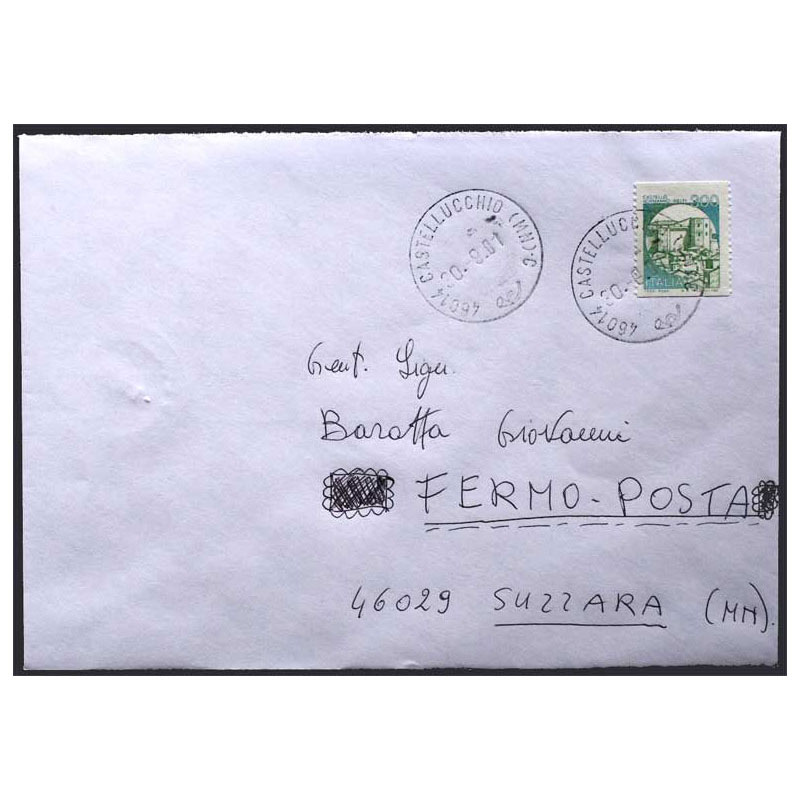 46014 CASTELLUCCHIO (MN)-C
9.01
46014 CASTELLUCC
300
ITALIA
Gent. Sign.
Baratta Giovanni
FERMO-POSTA
46029 SUZZARA (MN).